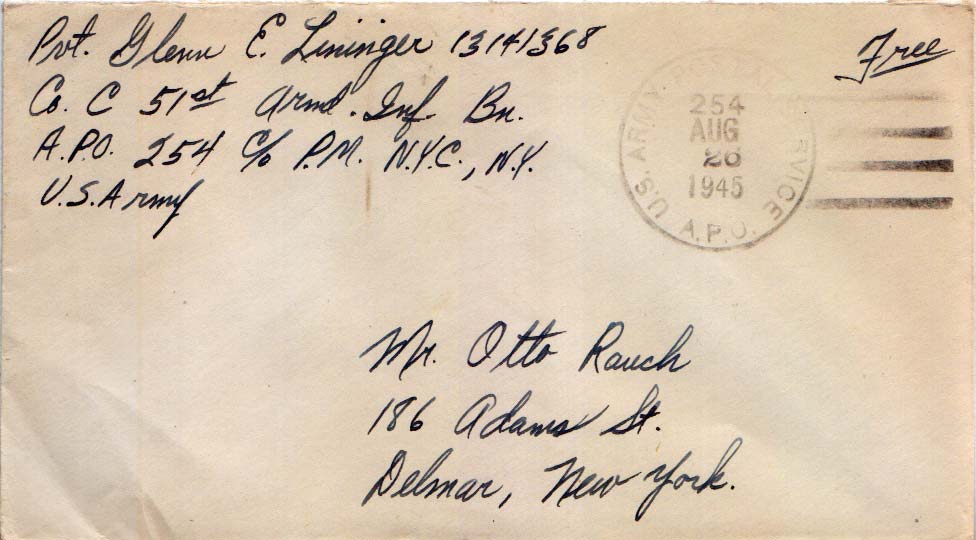 Pvt. Glenn E. Lininger 13141368
Free
Co. C 51st Armd. Inf. Bn.
A.P.O. 254 c/o P.M. N.Y.C., N.Y.
U.S. Army
U.S. ARMY POSTAL SERVICE
254
AUG
26
1945
A.P.O.
Mr. Otto Rauch
186 Adams St.
Delmar, New York.